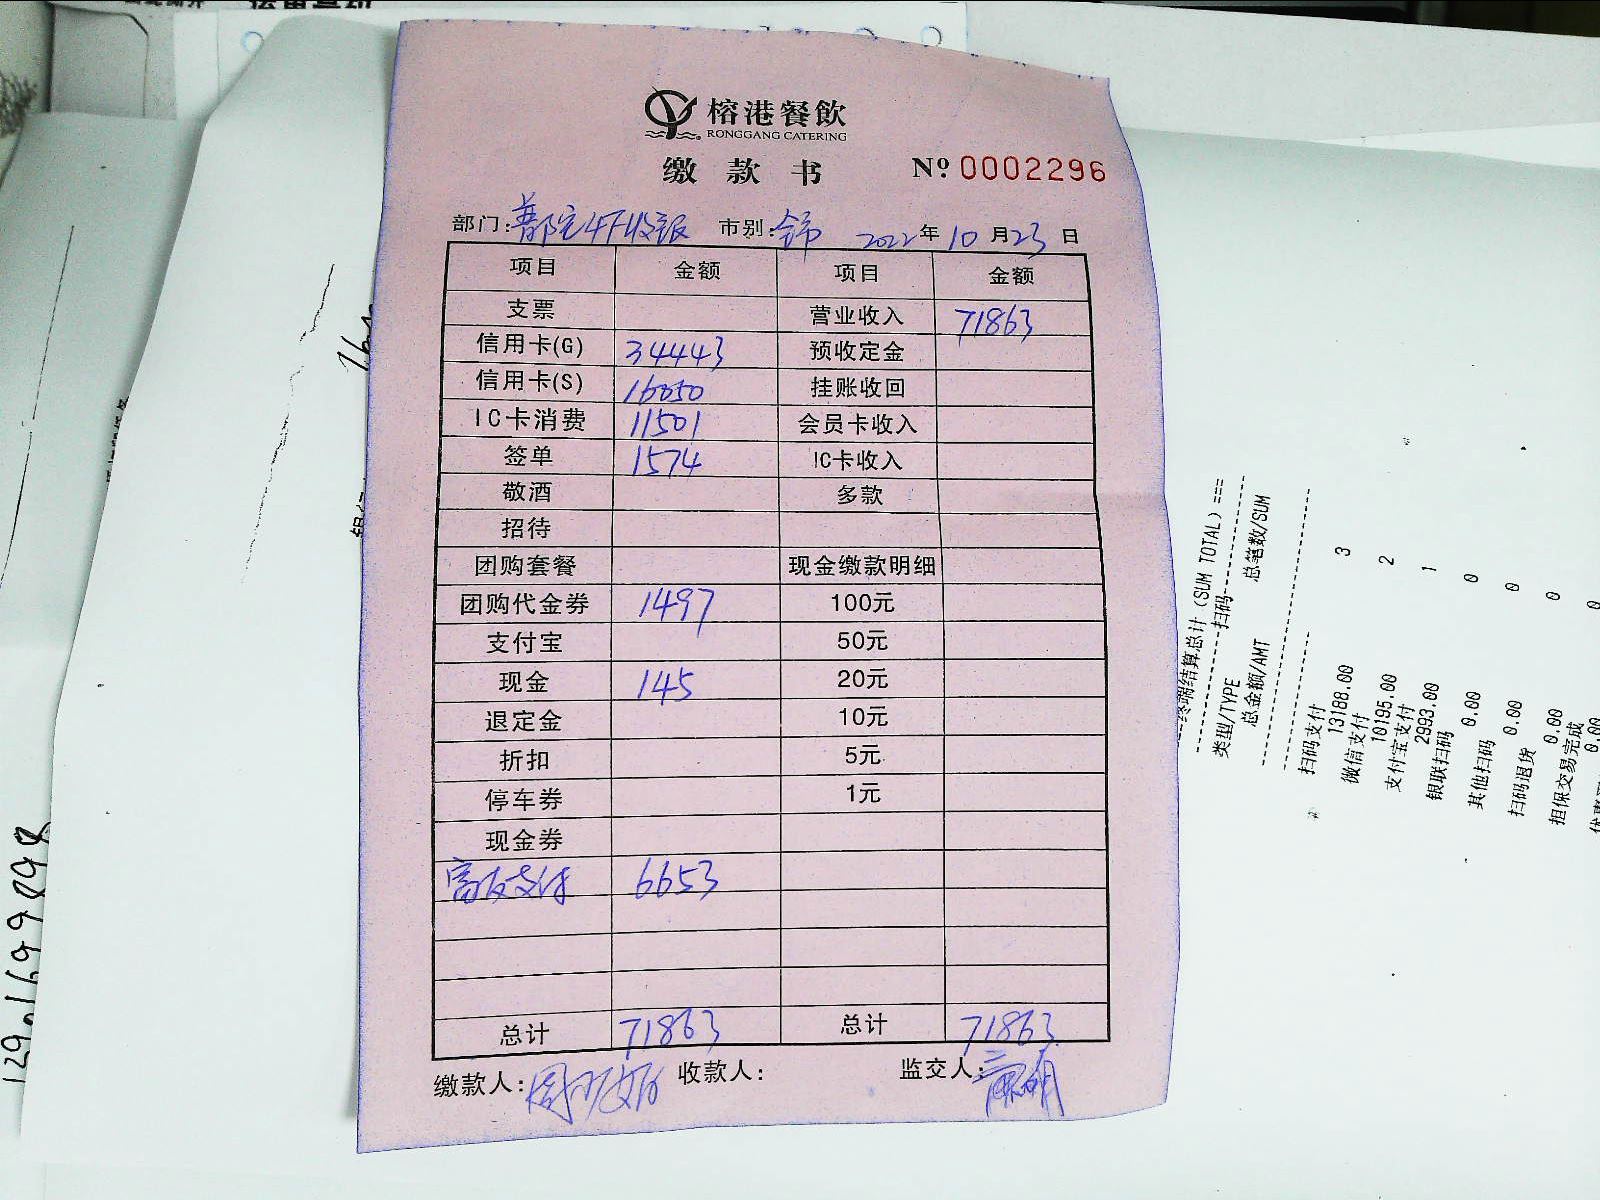 榕港餐飲
RONGGANG CATERING
缴款书 Nº 0002296
部门: 普宅4F收银 市别: 全市 2022年10月23日
项目 金额 项目 金额
支票 营业收入 71863
信用卡(G) 34443 预收定金
信用卡(S) 16050 挂账收回
IC卡消费 11501 会员卡收入
签单 1574 IC卡收入
敬酒 多款
招待
团购套餐 现金缴款明细
团购代金券 1497 100元
支付宝 50元
现金 145 20元
退定金 10元
折扣 5元
停车券 1元
现金券
富友支付 6653
总计 71863 总计 71863
缴款人: 收款人: 监交人:
终端结算总计 (SUM TOTAL) ===
扫码
类型/TYPE 总笔数/SUM
总金额/AMT
扫码支付 3
13188.00
微信支付 2
10195.00
支付宝支付 1
2993.00
银联扫码 0
0.00
其他扫码 0
0.00
扫码退货 0
0.00
担保交易完成 0
0.00